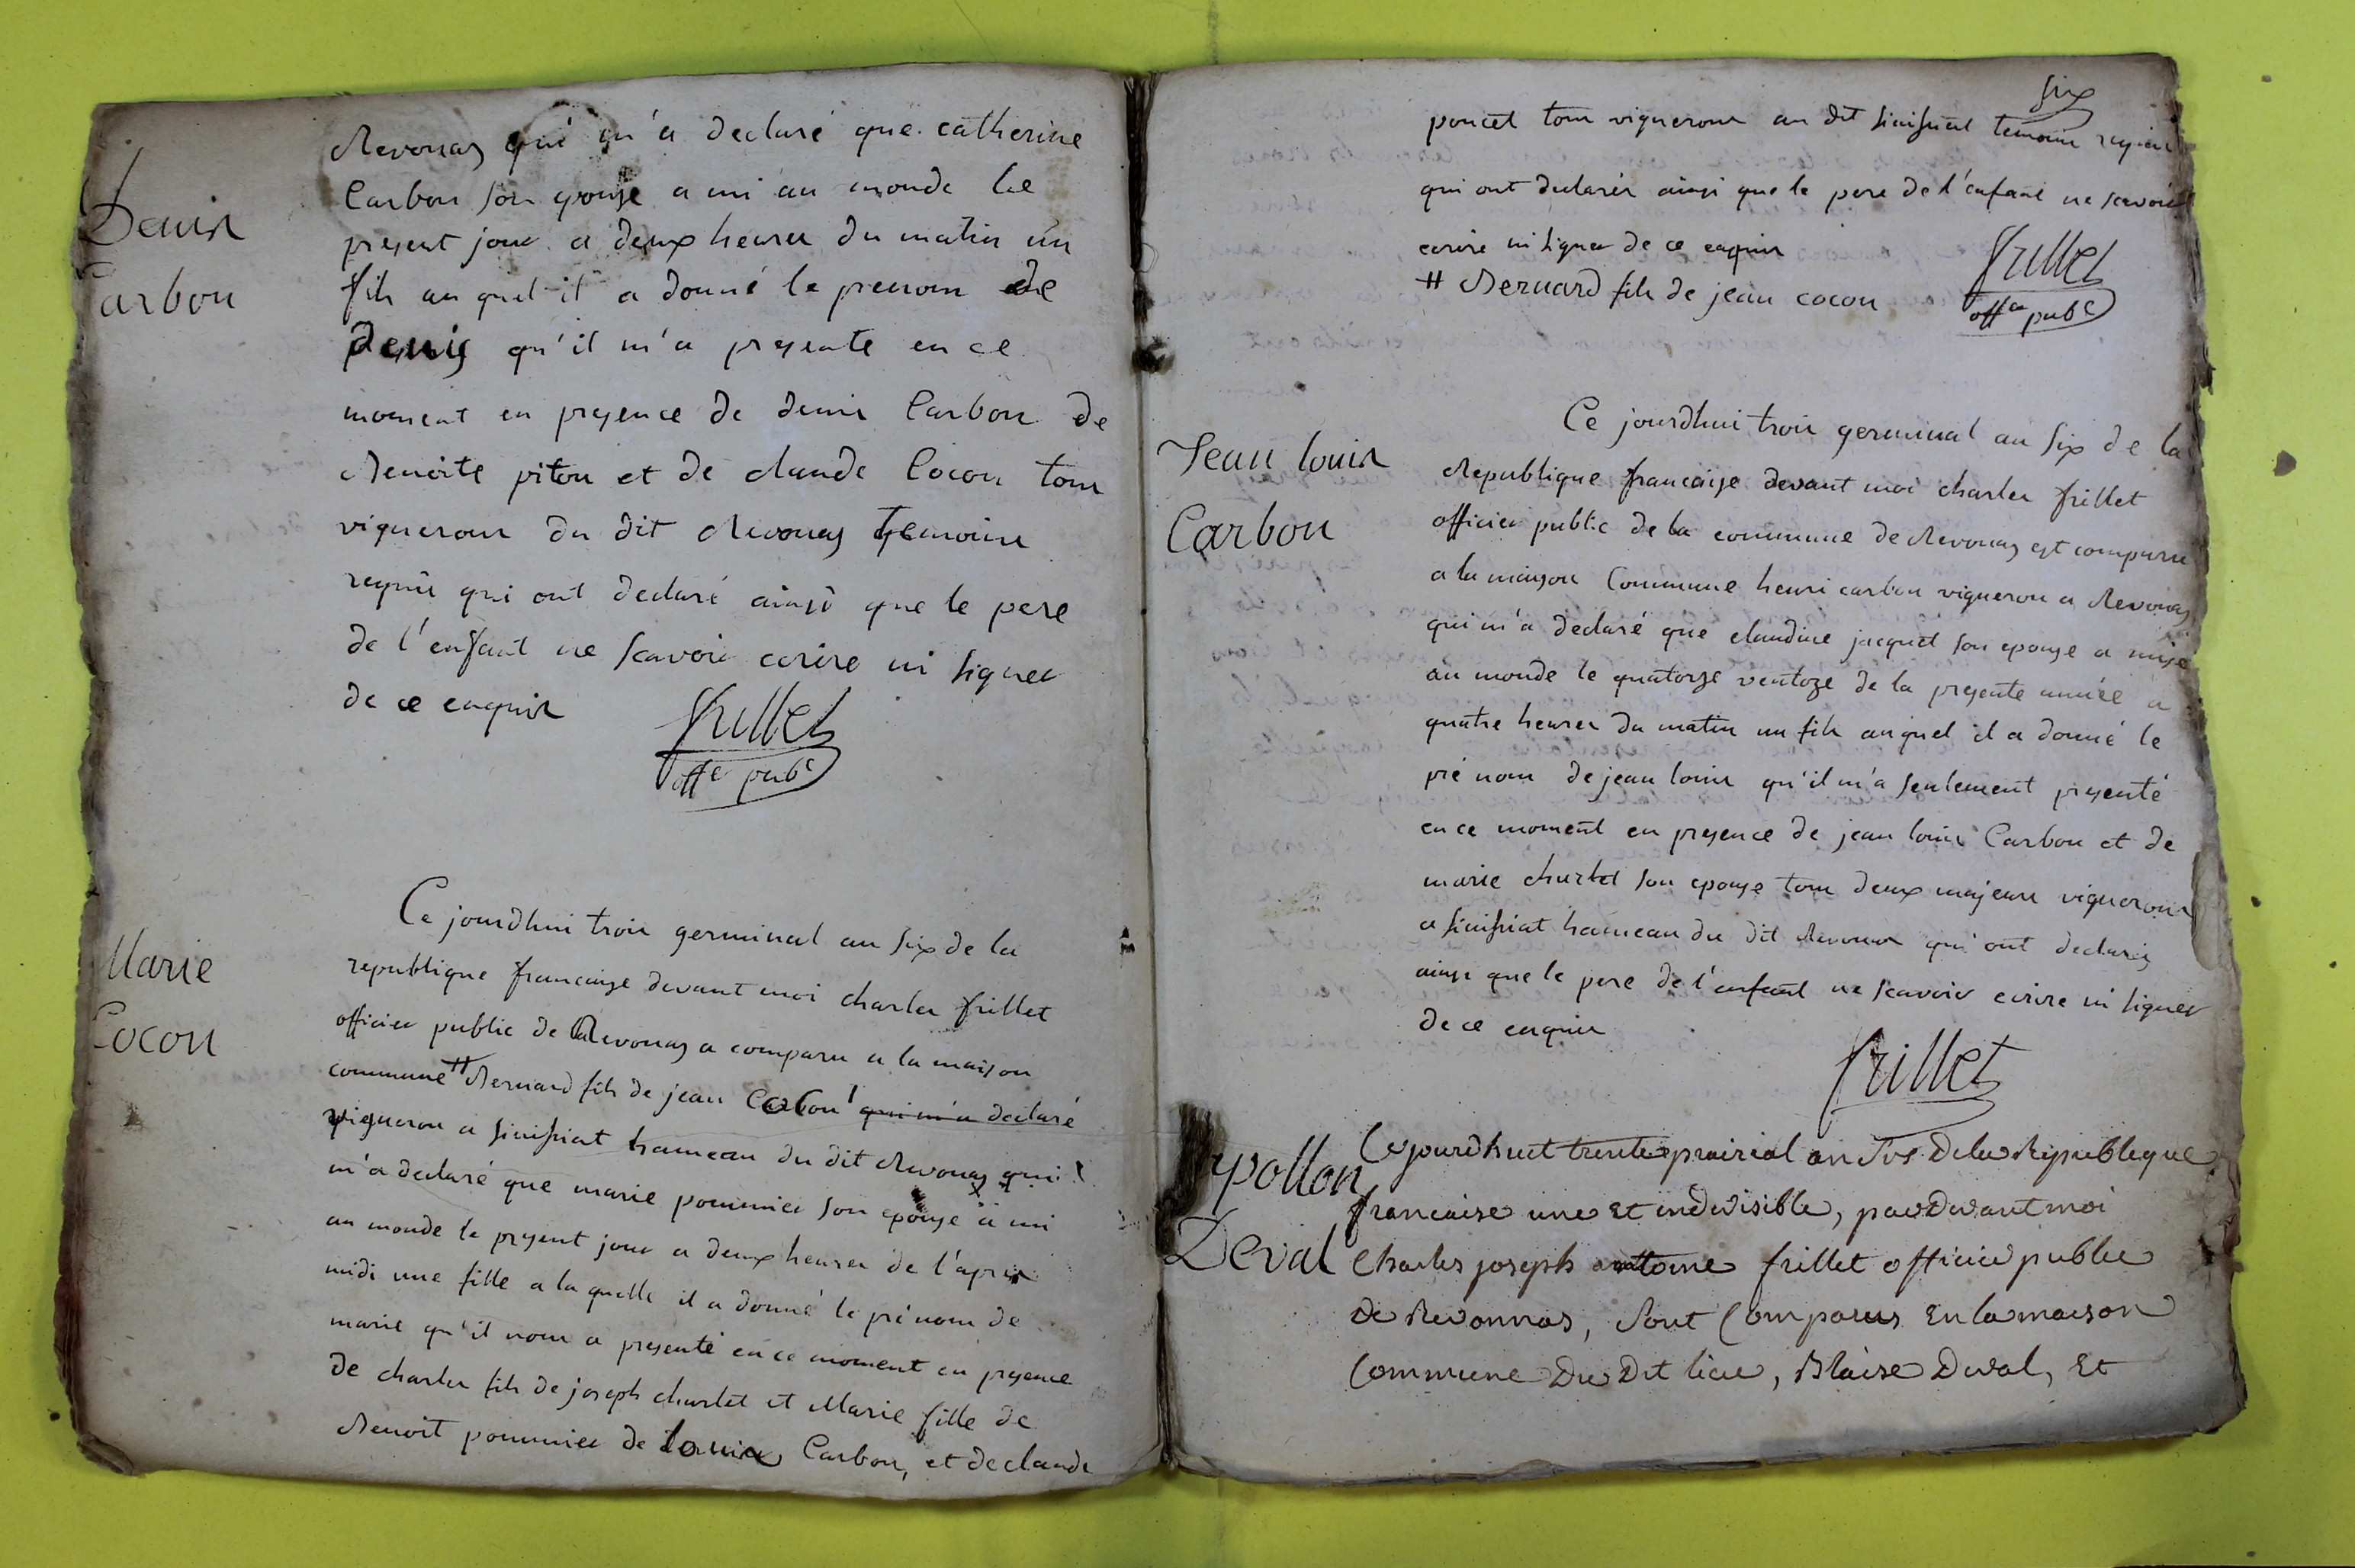 Denis
Carbon
Revonas qui m'a declaré que catherine
Carbon son epouse a mi au monde le
present jour a deux heures du matin un
fils au quel il a donné le prenom de
Denis qu'il m'a presente en ce
moment en presence de denis Carbon de
Benoite piton et de claude Cocon tous
vignerons du dit Revonas temoins
requis qui ont declaré ainsi que le pere
de l'enfant ne scavoir ecrire ni signer
de ce enquis
frillet
offe pubc
Marie
Cocon
Ce jourdhui trois germinal an six de la
republique francaise devant moi charles frillet
officier public de Revonas a comparu a la maison
commune # Bernard fils de jean Cocon qui m'a declaré
vigneron a sinissiat hameau du dit Revonas qui
m'a declaré que marie pommier son epouse a mi
au monde le present jour a deux heures de l'après
midi une fille a la quelle il a donné le prénom de
marie qu'il nous a presenté en ce moment en presence
de charles fils de joseph charlet et Marie fille de
Benoit pommier de louis Carbon, et de claude
six
poncet tous vignerons au dit sinissiat temoins requis
qui ont declarés ainsi que le pere de l'enfant ne scavoir
ecrire ni signer de ce enquis
# Bernard fils de jean cocon
frillet
offer pubc
Jean louis
Carbon
Ce jourdhui trois germinal an six de la
Republique francaise devant moi charles frillet
officier public de la commune de Revonas est comparu
a la maison Commune henri carbon vigneron a Revonas
qui m'a declaré que claudine jacquet son epouse a mise
au monde le quatorze ventoze de la presente année a
quatre heures du matin un fils auquel il a donné le
pré nom de jean louis qu'il m'a seulement presenté
en ce moment en presence de jean louis Carbon et de
marie charlet son epouse tous deux majeurs vignerons
a sinissiat hameau du dit Revonas qui ont declarés
ainsi que le pere de l'enfant ne scavoir ecrire ni signer
de ce enquis
frillet
Apollon
Deval
Cejourdhuit trente prairial an six de la Republeque
francaise une et indivisible, par devant moi
Charles joseph antoine frillet officié public
de Revonnas, sont Comparus en la maison
Commune du dit lieu, Blaise Deval, Et